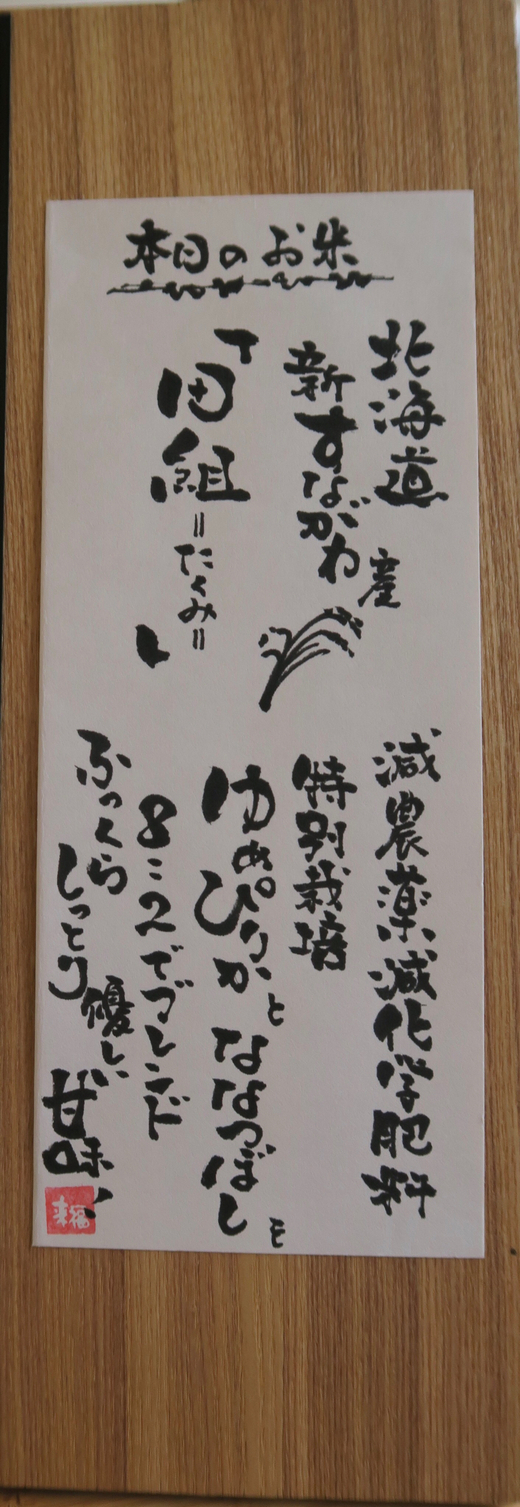 本日のお米
北海道
新すながわ産
「田組
=たくみ=」
減農薬減化学肥料
特別栽培
ゆめぴりかとななつぼしを
8:2でブレンド
ふっくら
しっとり
優しい
甘味!
来福